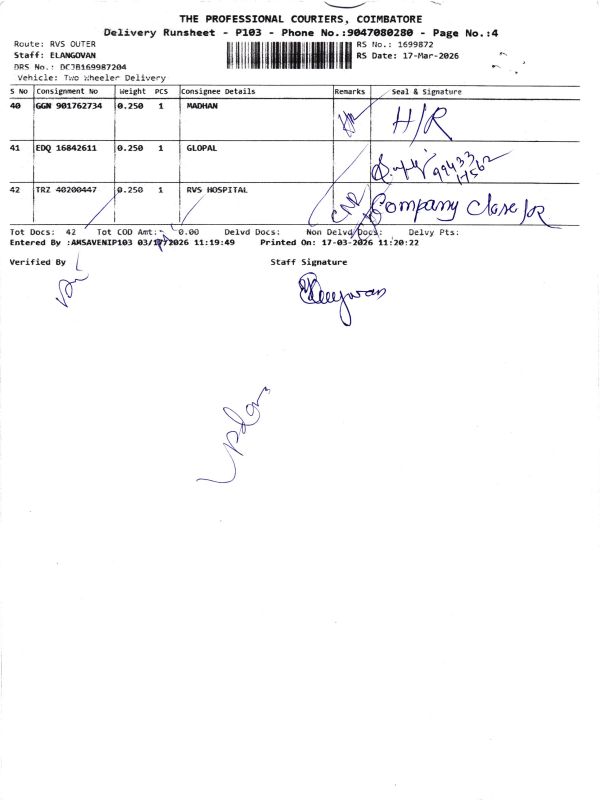 THE PROFESSIONAL COURIERS, COIMBATORE
Delivery Runsheet - P103 - Phone No.:9047080280 - Page No.:4
Route: RVS OUTER
RS No.: 1699872
Staff: ELANGOVAN
RS Date: 17-Mar-2026
DRS No.: DCJB169987204
Vehicle: Two Wheeler Delivery
S No Consignment No Weight PCS Consignee Details Remarks Seal & Signature
40 GGN 901762734 0.250 1 MADHAN H/R
41 EDQ 16842611 0.250 1 GLOPAL 99433
42 TRZ 40200447 0.250 1 RVS HOSPITAL Company Close
Tot Docs: 42 Tot COD Amt: 0.00 Delvd Docs: Non Delvd Docs: Delvy Pts:
Entered By :AMSAVENIP103 03/17/2026 11:19:49 Printed On: 17-03-2026 11:20:22
Verified By Staff Signature